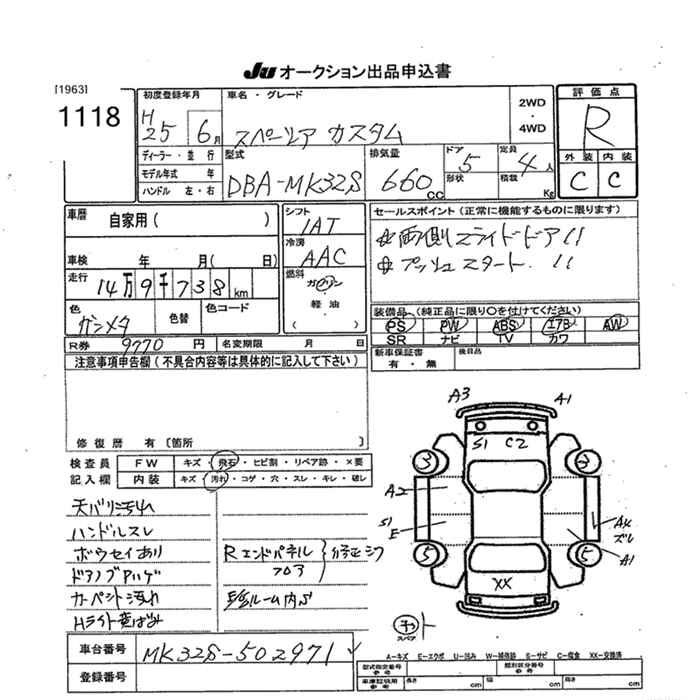 JU オークション出品申込書
[1963]
1118
初度登録年月
H25 6月
車名・グレード
スペーシア カスタム
2WD
・
4WD
評価点
R
外装 内装
C C
ディーラー・並行
モデル年式 年
ハンドル 左・右
型式
DBA-MK32S
排気量
660 cc
ドア
5
形状
定員
4人
積載 Kg
車歴
自家用( )
車検 年 月( 日)
走行
14万9千738km
色
ガンメタ
色替
色コード
シフト
IAT
冷房
AAC
燃料
ガソリン
・
軽油
・
( )
セールスポイント(正常に機能するものに限ります)
両側スライドドア!!
プッシュスタート!!
装備品(純正品に限り○を付けてください)
PS PW ABS エアB AW
SR ナビ TV カワ
R券 9770 円 名変期限 月 日
新車保証書
有・無
後日品
注意事項申告欄(不具合内容等は具体的に記入して下さい)
修復歴 有〔箇所 〕
検査員
記入欄
FW キズ・飛石・ヒビ割・リペア跡・×要
内装 キズ・汚れ・コゲ・穴・スレ・キレ・破レ
天バリ汚れ
ハンドルスレ
ボウセイあり
ドアノブPハゲ
カーペット汚れ
Hライト黄ばみ
Rエンドパネル
フロア
修正シワ
A3 A1
S1 C2
3 3
A2
S1
E
A4
ズレ
A1
5 5
XX
スペア
A-キズ E-エクボ U-凹み W-補修跡 S-サビ C-腐食 XX-交換済
車台番号 MK32S-502971
登録番号
型式指定番号
参考
類別区分番号
参考
車庫証明用
参考
長さ cm 幅 cm 高さ cm